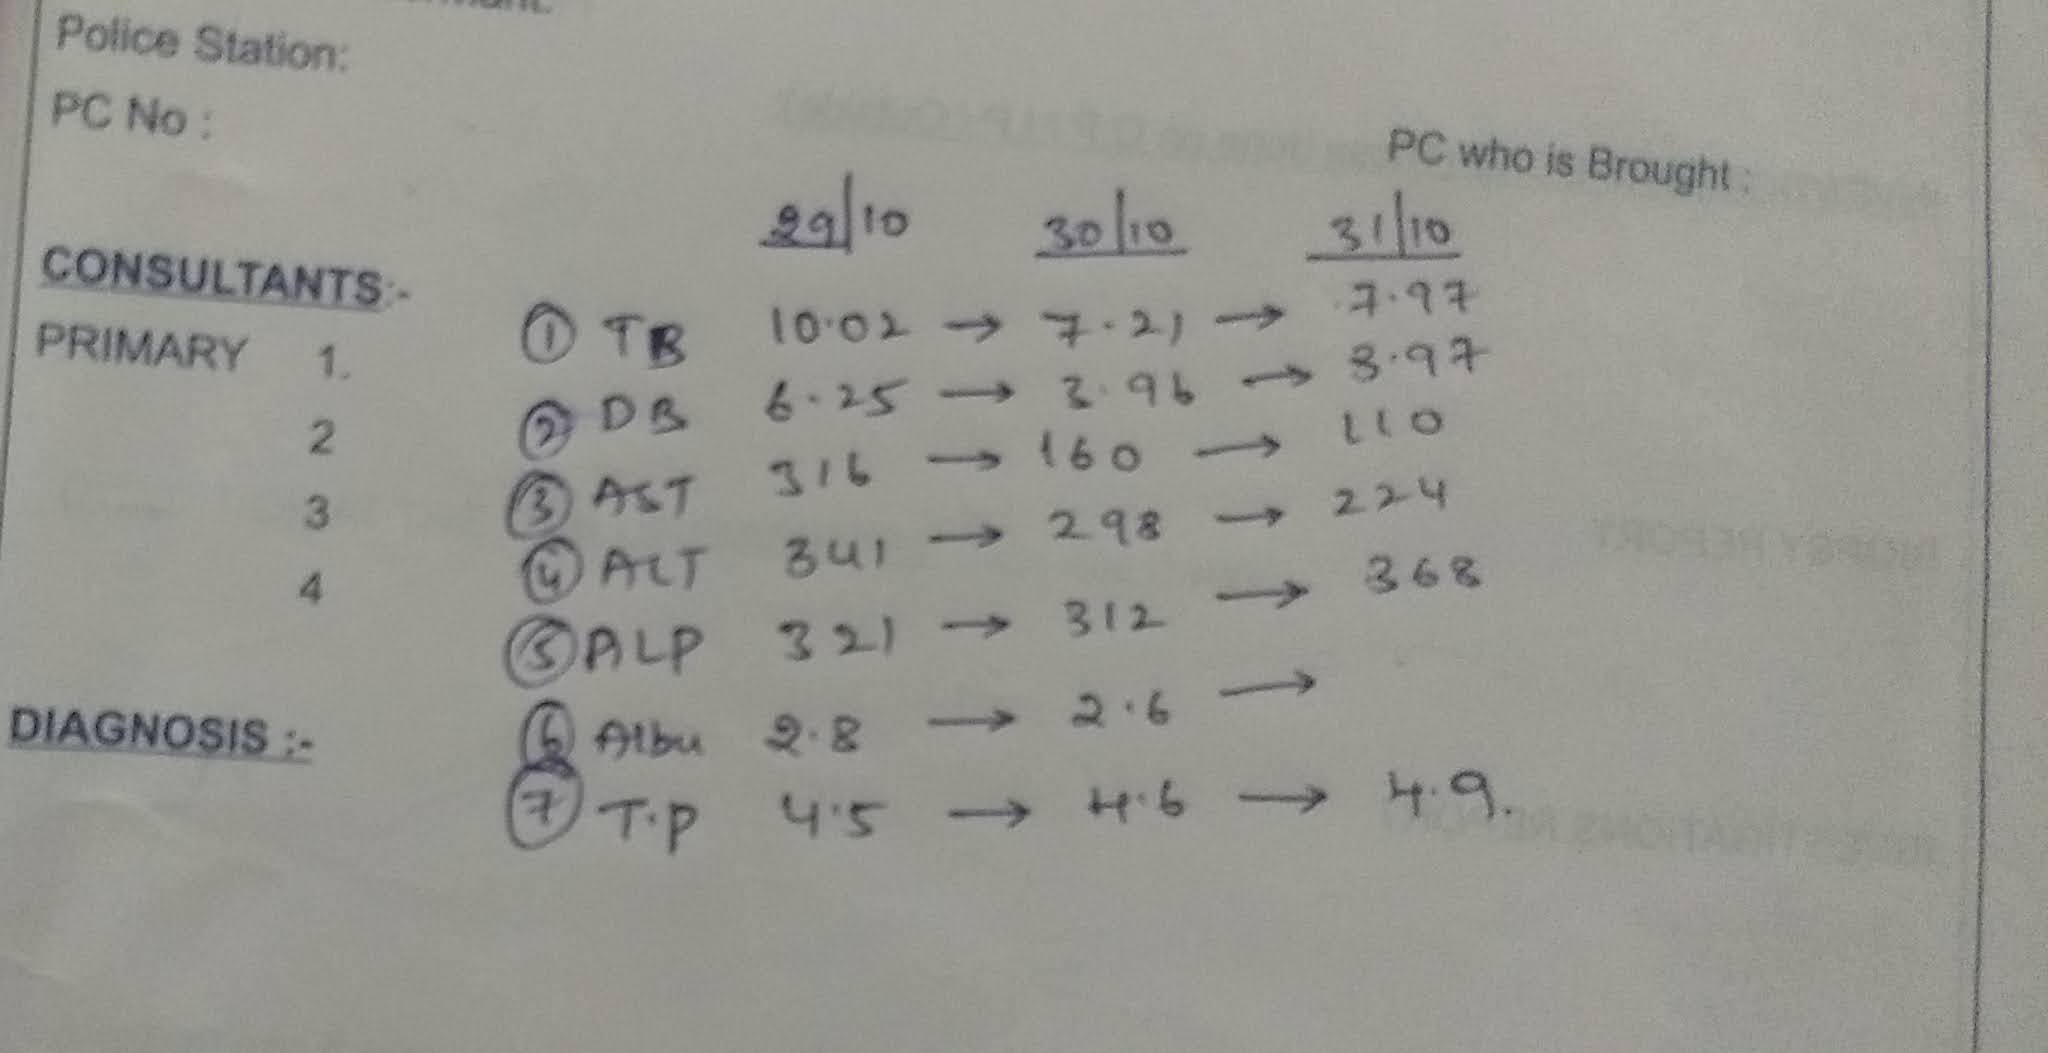 Police Station:
PC No :
PC who is Brought :
29/10 30/10 31/10
CONSULTANTS:-
PRIMARY 1.
2
3
4
① TB 10.02 → 7.21 → 7.97
② DB 6.25 → 3.96 → 3.97
③ AST 316 → 160 → 110
④ ALT 341 → 298 → 224
⑤ ALP 321 → 312 → 368
⑥ Albu 2.8 → 2.6 →
⑦ T.P 4.5 → 4.6 → 4.9.
DIAGNOSIS :-